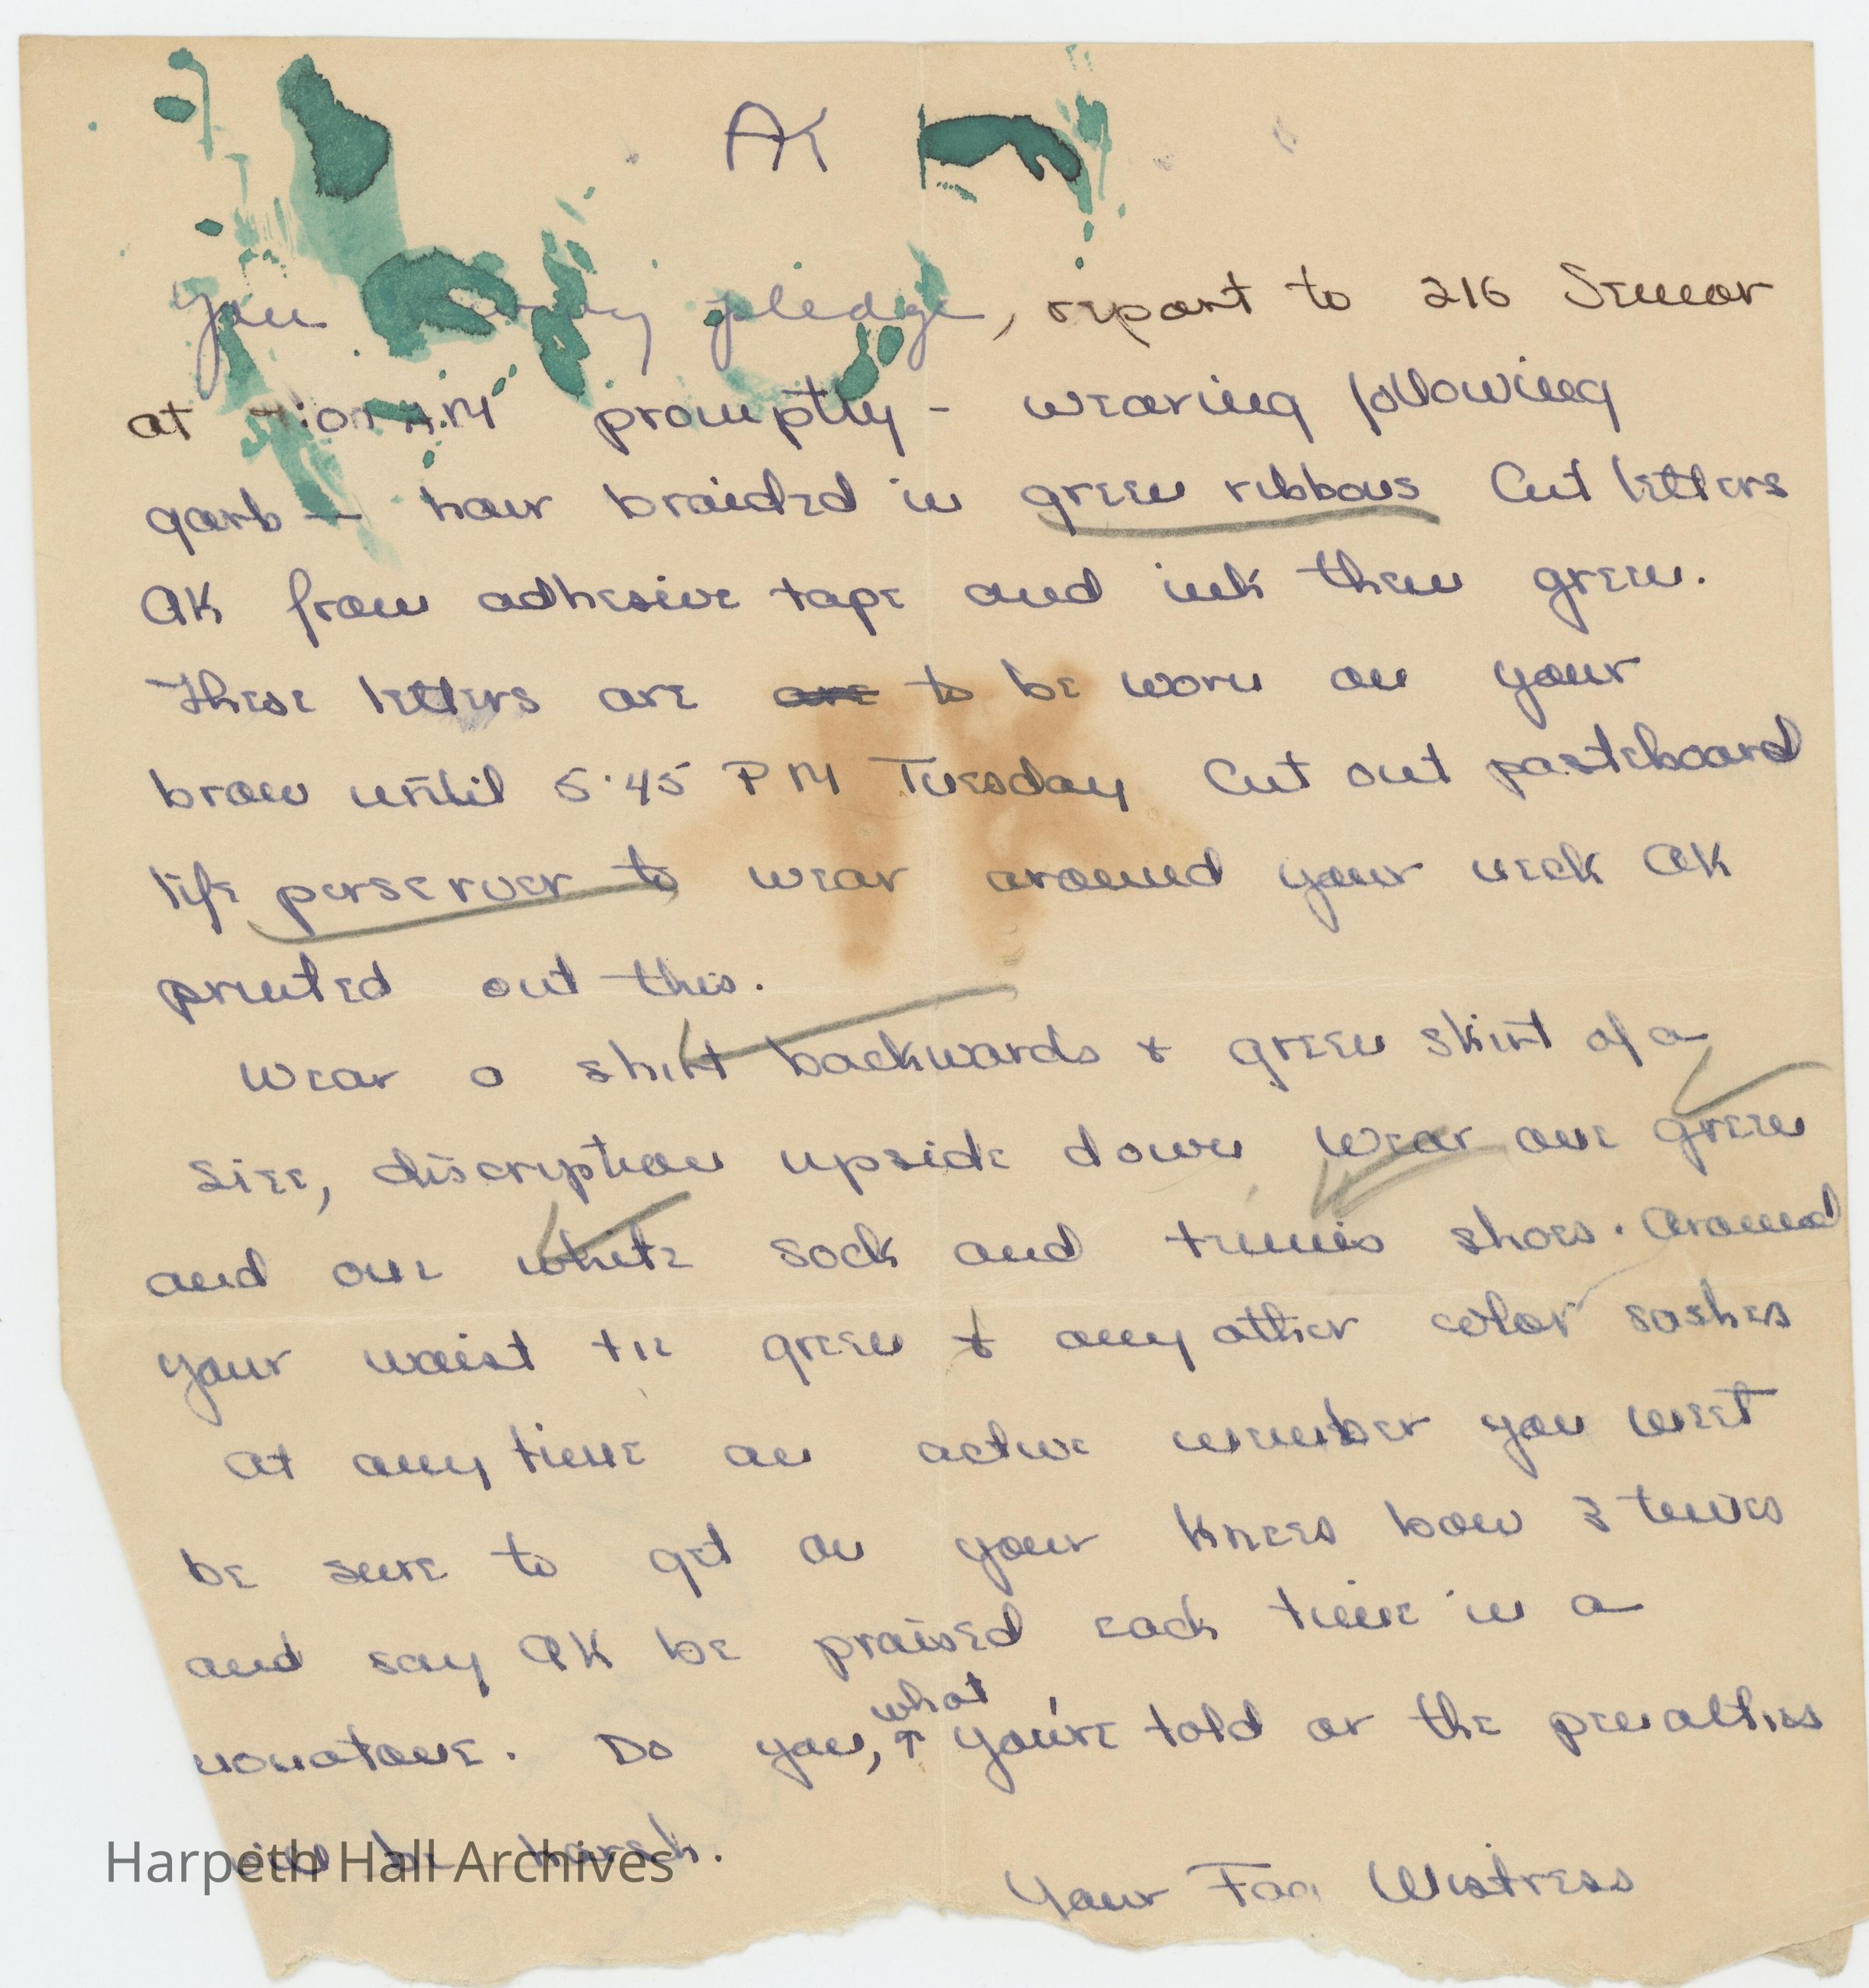 AK
You pledge, report to 216 Senior
at A.M promptly - wearing following
garb — hair braided in green ribbons Cut letters
AK from adhesive tape and ink them green.
These letters are are to be worn on your
brow until 5:45 PM Tuesday Cut out pasteboard
life perserver to wear around your neck AK
printed out this.
Wear a shirt backwards & green skirt of a
size, discription upside down Wear one green
and one white sock and tennis shoes. Around
your waist tie green & any other color sashes
At any time an active member you meet
be sure to get on your knees bow 3 times
and say AK be praised each time in a
monotone. Do you, what you're told or the penalties
will be harsh.
Your Fag Mistress
Harpeth Hall Archives